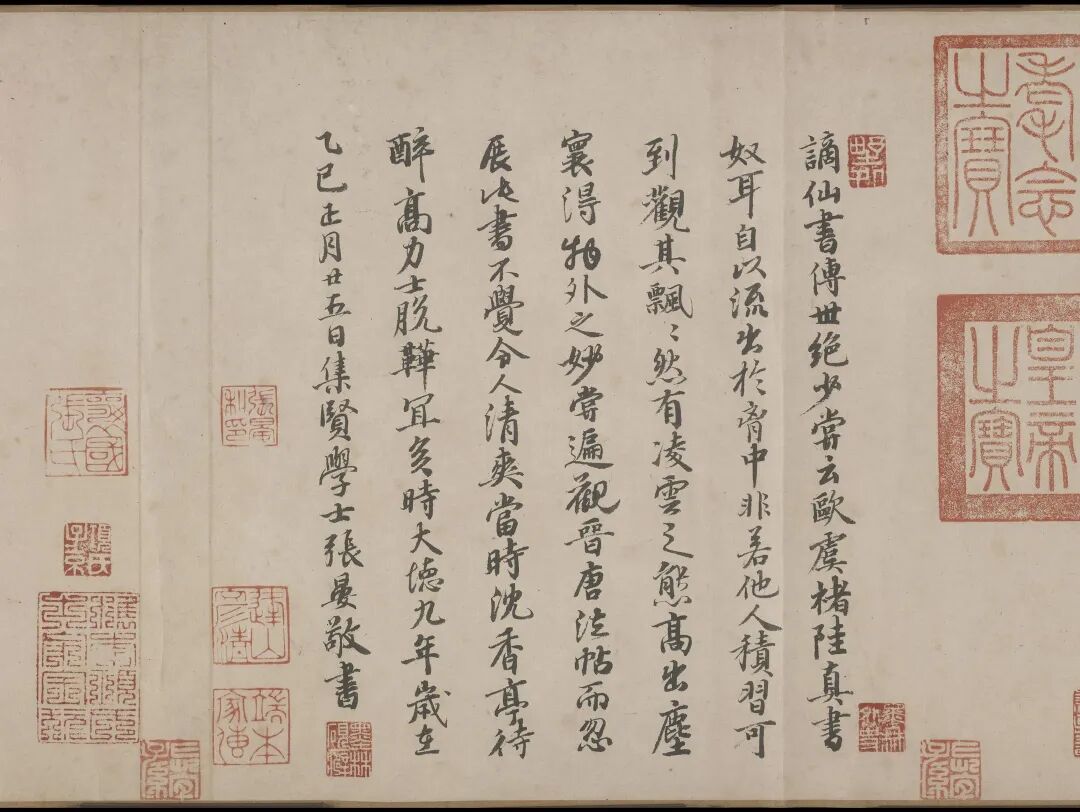 皇帝之寶
謫仙書傳世絶少嘗云歐虞楮陸真書
奴耳自以流出於胷中非若他人積習可
到觀其飄〻然有凌雲之態高出塵
寰得物外之妙嘗遍觀晉唐法帖而忽
展此書不覺令人清爽當時沈香亭待
醉高力士脫鞾冝矣時大德九年歲在
乙巳正月廿五日集賢學士張晏敬書
張晏私印